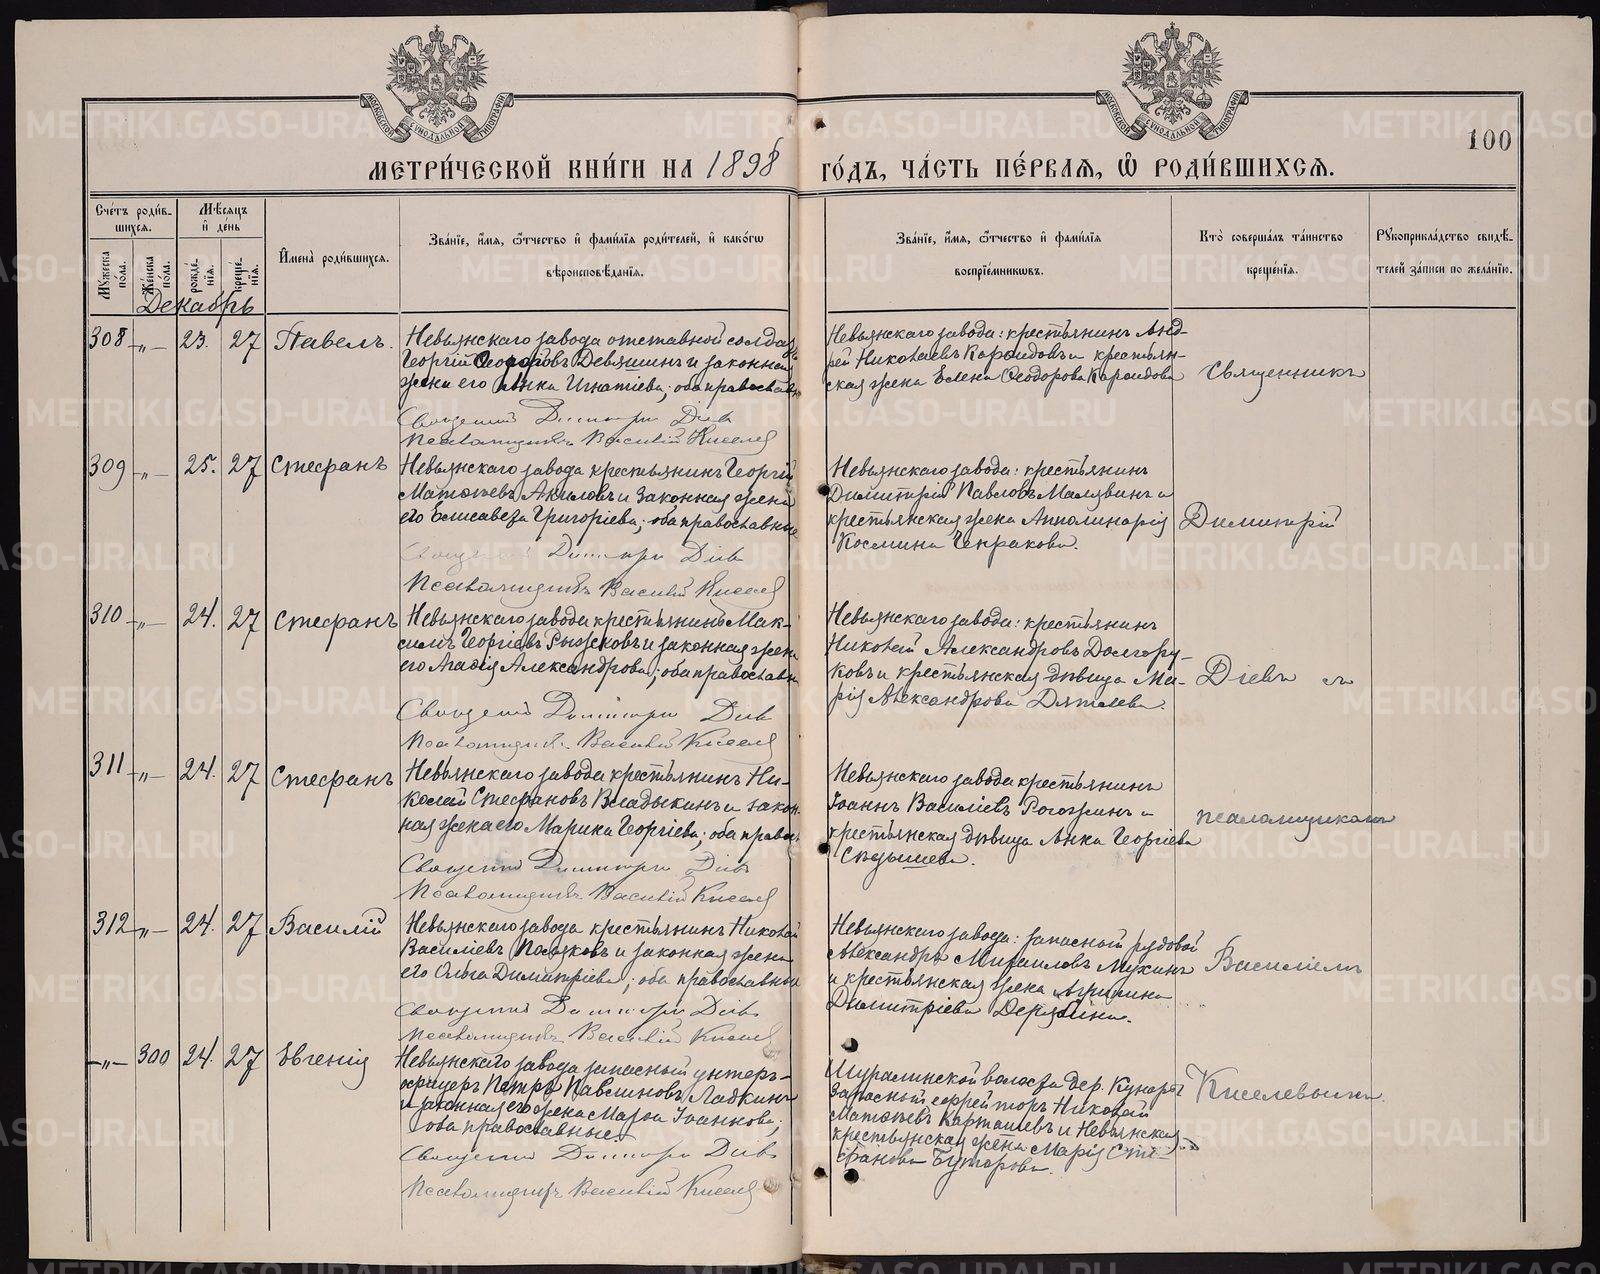 МОСКОВСКОЙ СѴНОДАЛЬНОЙ ТИПОГРАФІИ
МОСКОВСКОЙ СѴНОДАЛЬНОЙ ТИПОГРАФІИ
100
МЕТРИ́ЧЕСКОЙ КНИ́ГИ НА 1898 ГО́ДЪ, ЧА́СТЬ ПЕ́РВАѦ, Ѡ҆ РОДИ́ВШИХСѦ.
Сче́тъ роди́вшихсѧ.
Мꙋ́жеска по́ла.
Же́нска по́ла.
Мѣ́сѧцъ и҆ де́нь
рожде́нїѧ.
креще́нїѧ.
И҆мена̀ роди́вшихсѧ.
Зва́нїе, и҆́мѧ, ѻ҆́тчество и҆ фами́лїѧ роди́телей, и҆ како́гѡ
вѣроисповѣ́данїѧ.
Зва́нїе, и҆́мѧ, ѻ҆́тчество и҆ фами́лїѧ
воспрїе́мникѡвъ.
Кто̀ соверша́лъ та́инство
креще́нїѧ.
Рꙋкоприкла́дство свидѣ́телей за́писи по жела́нїю.
Декабрь
308 -„- 23. 27 Павелъ.
Невьянскаго завода отставной солдатъ
Георгій Ѳеодоровъ Девяшинъ и законная
жена его Анна Игнатіева; оба православн
Священникъ Димитрій Діевъ
Псаломщикъ Василій Киселев
Невьянскаго завода: крестьянинъ Анд-
рей Николаевъ Караидовъ и крестьян-
ская жена Елена Ѳеодорова Караидова
Священникъ
309 -„- 25. 27 Стефанъ
Невьянскаго завода крестьянинъ Георгій
Матѳіевъ Акиловъ и законная жена
его Елисавета Григоріева; оба православные
Священникъ Димитрій Діевъ
Псаломщикъ Василій Киселев
Невьянскаго завода: крестьянинъ
Димитрій Павловъ Малявинъ и
крестьянская жена Апполинарія
Космина Чепракова.
Димитрій
310 -„- 24. 27 Стефанъ
Невьянскаго завода крестьянинъ Мак-
симъ Георгіевъ Рыжковъ и законная жена
его Агаѳія Александрова; оба православн
Священникъ Димитрій Діевъ
Псаломщикъ Василій Киселев
Невьянскаго завода: крестьянинъ
Николай Александровъ Долгору-
ковъ и крестьянская дѣвица Ма-
рія Александрова Дятлева.
Діевъ съ
311 -„- 24. 27 Стефанъ
Невьянскаго завода крестьянинъ Ни-
колай Стефановъ Владыкинъ и закон-
ная жена его Марина Георгіева; оба правос
Священникъ Димитрій Діевъ
Псаломщикъ Василій Киселев
Невьянскаго завода крестьянинъ
Іоаннъ Василіевъ Рогожинъ и
крестьянская дѣвица Анна Георгіева
Сѣдышева.
псаломщикомъ
312 -„- 24. 27 Василій
Невьянскаго завода крестьянинъ Николай
Василіевъ Поляковъ и законная жена
его Ольга Димитріева; оба православные
Священникъ Димитрій Діевъ
Псаломщикъ Василій Киселев
Невьянскаго завода: запасный рядовой
Александръ Михаиловъ Мухинъ
и крестьянская жена Агрипина
Димитріева Дерябина.
Василіемъ
-„- 300 24. 27 Евгенія
Невьянскаго завода запасный унтеръ-
офицеръ Петръ Павлиновъ Ладкинъ
и законная его жена Марѳа Іоаннова;
оба православные.
Священникъ Димитрій Діевъ
Псаломщикъ Василій Киселев
Шуралинской волости дер. Кунары
запасный ефрейторъ Николай
Матѳіевъ Карташевъ и Невьянская
крестьянская жена Марія Сте-
фанова Буторова.
Киселевымъ.